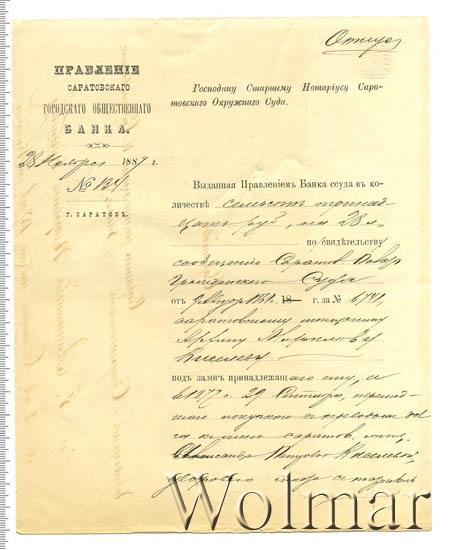 Отпус
ПРАВЛЕНІЕ
САРАТОВСКАГО
ГОРОДСКАГО ОБЩЕСТВЕННАГО
БАНКА.
28 Ноября 1887 г.
№ 134
Г. САРАТОВЪ.
Господину Старшему Нотаріусу Сара-
товскаго Окружнаго Суда.
Выданная Правленіемъ Банка ссуда въ ко-
личествѣ семьсотъ тринад-
цать руб, на 28 л.
по свидѣтельству
Саратов.
Гражданскаго Суда
отъ 18 г. за № 6741,
саратовскому мещанину
Киселеву
подъ залогъ принадлежащаго ему, а
въ 1877 г. 29 переше-
дшаго покупкою съ переводомъ
Саратов.
Александръ Петрову Киселевой,
двороваго места съ
Wolmar